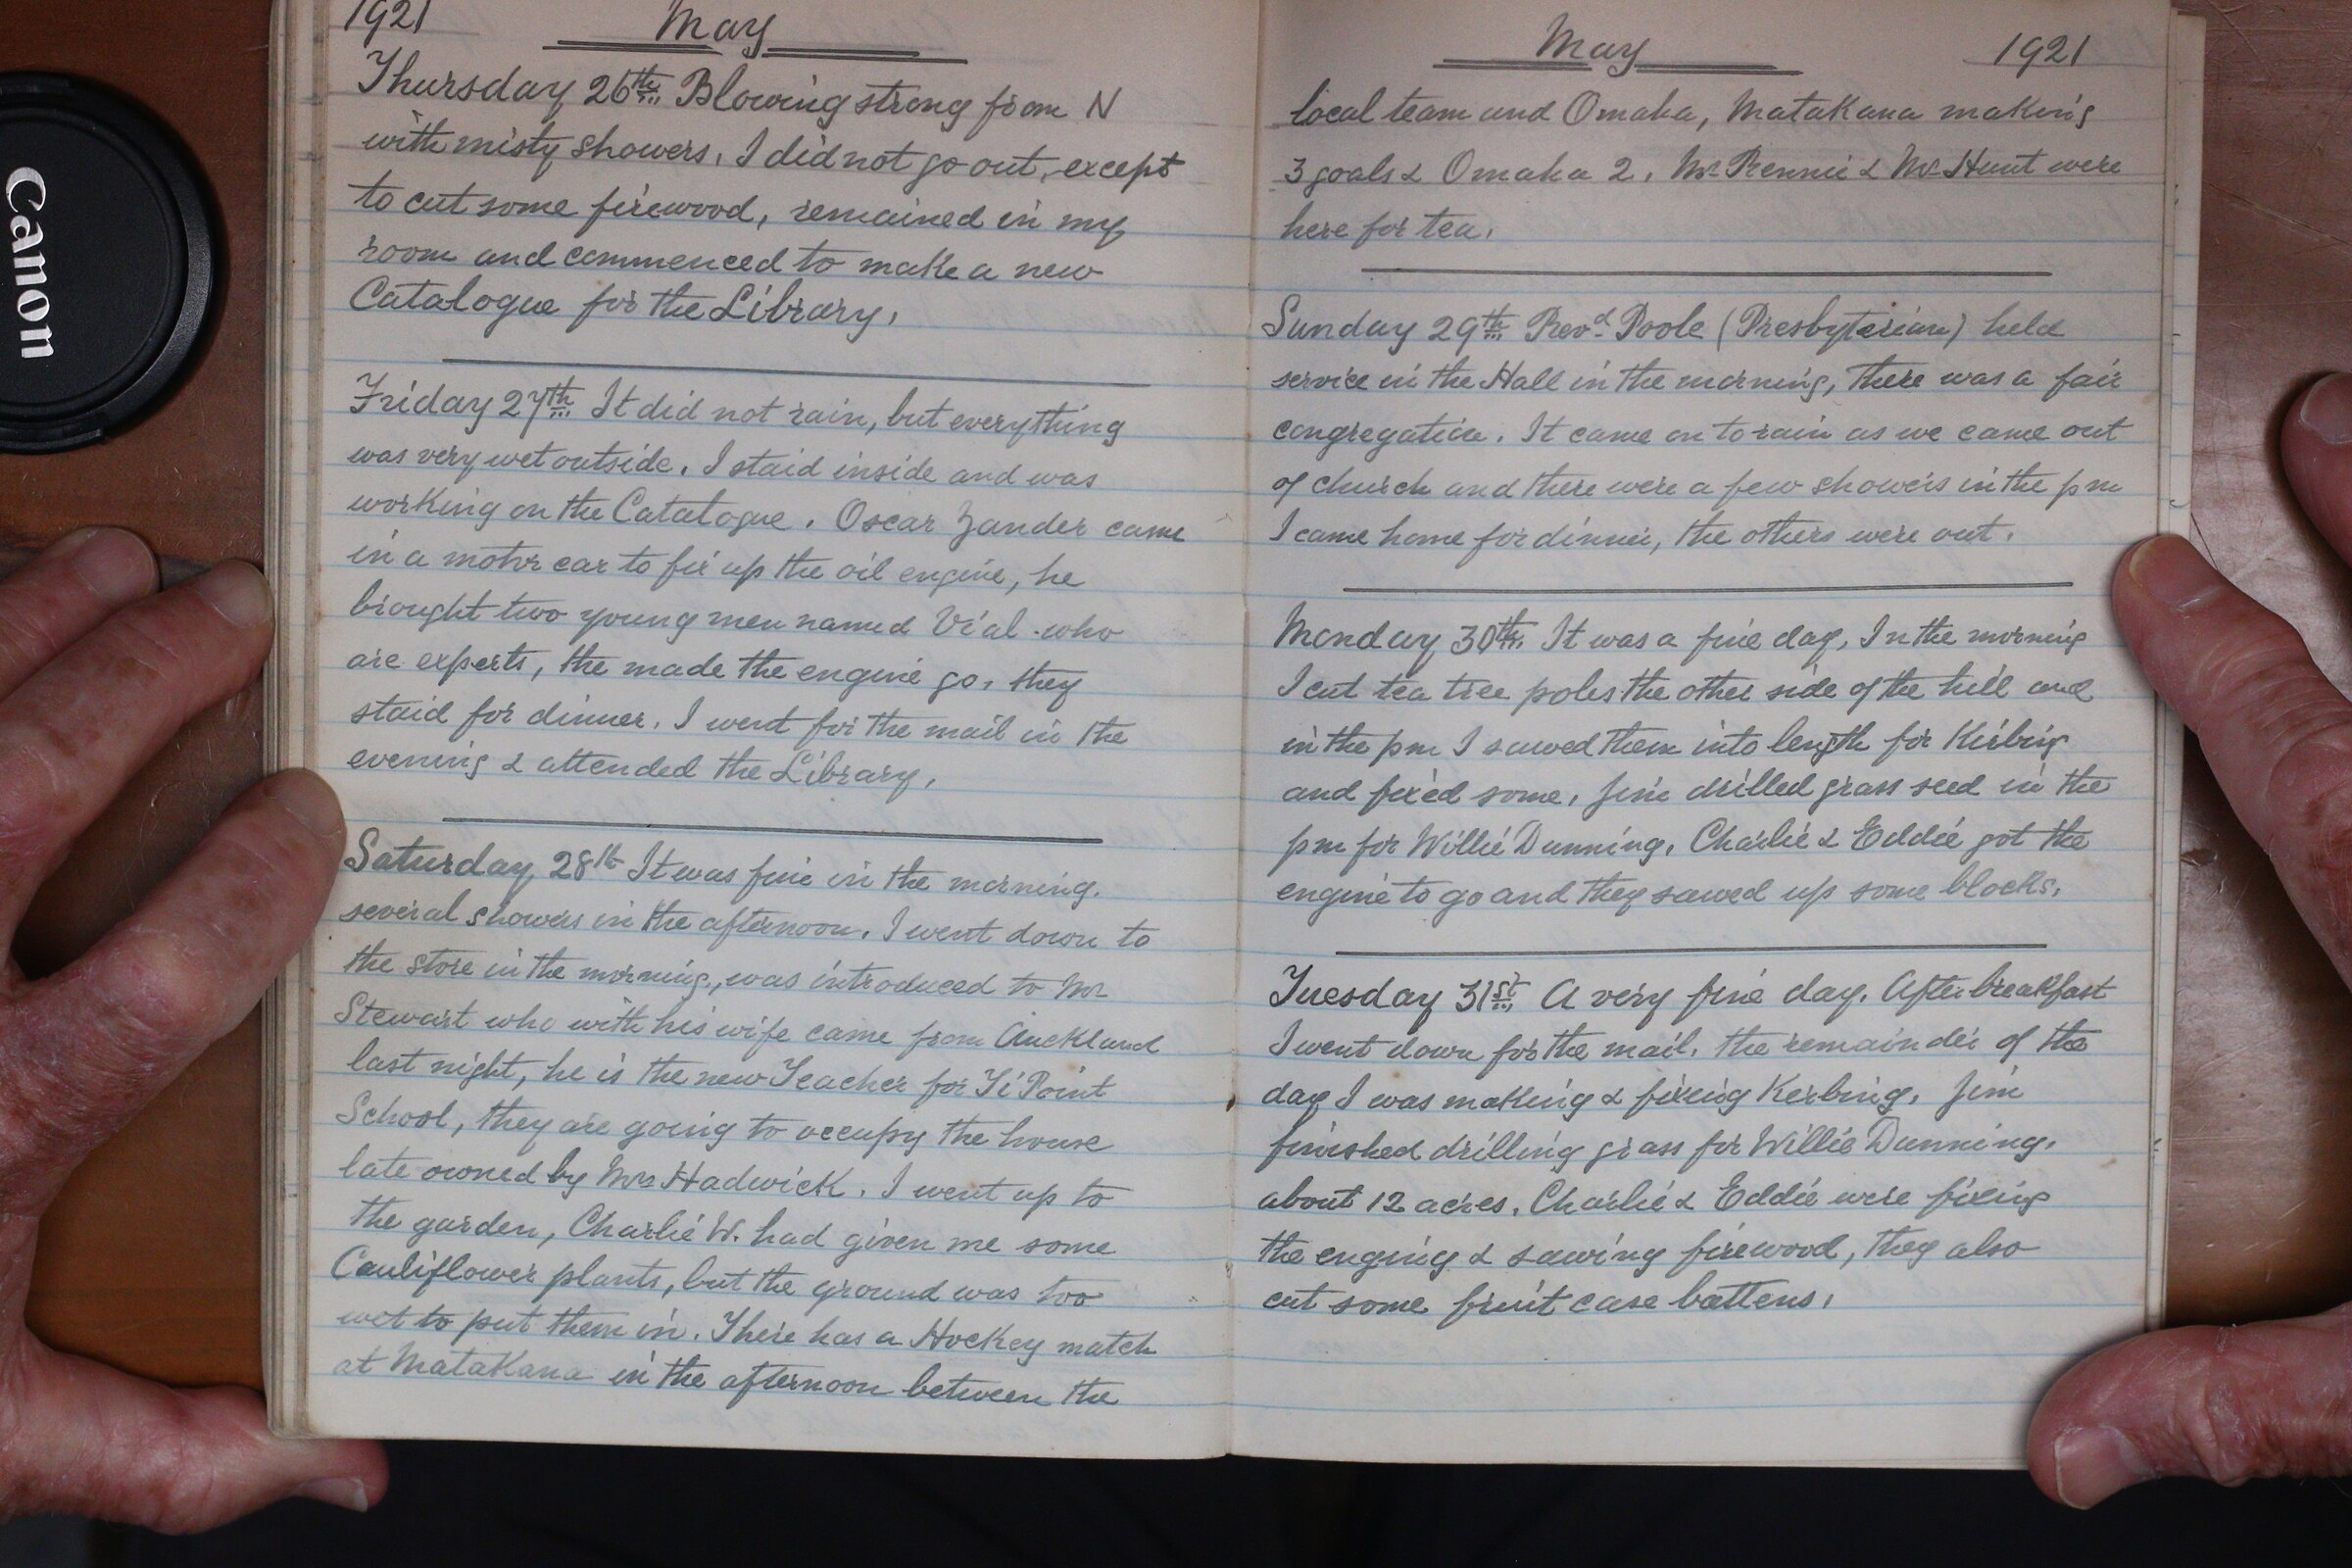 Canon
1921 May
Thursday 26th Blowing strong from N
with misty showers, I did not go out, except
to cut some firewood, remained in my
room and commenced to make a new
Catalogue for the Library,
Friday 27th It did not rain, but everything
was very wet outside. I staid inside and was
working on the Catalogue. Oscar Zander came
in a motor car to fix up the oil engine, he
brought two young men named Vial who
are experts, the made the engine go, they
staid for dinner. I went for the mail in the
evening & attended the Library,
Saturday 28th It was fine in the morning.
several showers in the afternoon. I went down to
the store in the morning, was introduced to Mr
Stewart who with his wife came from Auckland
last night, he is the new Teacher for Ti Point
School, they are going to occupy the house
late owned by Mrs Hadwick. I went up to
the garden, Charlie W. had given me some
Cauliflower plants, but the ground was too
wet to put them in. There has a Hockey match
at Matakana in the afternoon between the
May 1921
local team and Omaha, Matakana making
3 goals & Omaha 2. Mr Rennie & Mr Hunt were
here for tea,
Sunday 29th Revd Poole (Presbyterian) held
service in the Hall in the morning, there was a fair
congregation. It came on to rain as we came out
of church and there were a few showers in the pm
I came home for dinner, the others were out.
Monday 30th. It was a fine day, In the morning
I cut tea tree poles the other side of the hill and
in the pm I sawed them into length for Kirbing
and fixed some, Jim drilled grass seed in the
pm for Willie Dunning, Charlie & Eddie got the
engine to go and they sawed up some blocks,
Tuesday 31st A very fine day. After breakfast
I went down for the mail, the remainder of the
day I was making & fixing Kerbing, Jim
finished drilling grass for Willie Dunning.
about 12 acres. Charlie & Eddie were fixing
the enging & sawing firewood, they also
cut some fruit case battens,